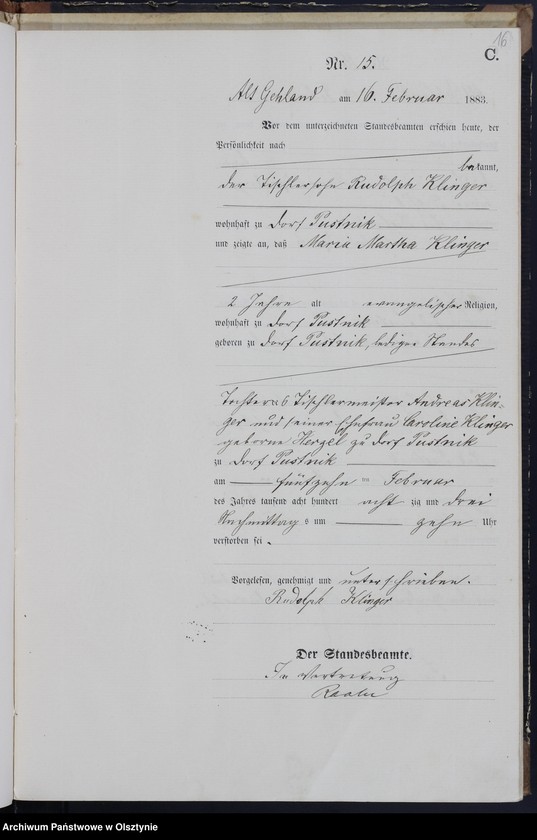 16
C.
Nr. 15.
Alt Gehland am 16. Februar 1883.
Vor dem unterzeichneten Standesbeamten erschien heute, der
Persönlichkeit nach
bekannt,
der Tischlersohn Rudolph Klinger
wohnhaft zu Dorf Pustnik
und zeigte an, daß Maria Martha Klinger
2 Jahre alt evangelischer Religion,
wohnhaft zu Dorf Pustnik
geboren zu Dorf Pustnik, ledigen Standes
Tochter des Tischlermeister Andreas Klin-
ger und seiner Ehefrau Caroline Klinger
geborne Hergel zu Dorf Pustnik
zu Dorf Pustnik
am fünfzehn ten Februar
des Jahres tausend acht hundert acht zig und drei
Nachmittag s um zehn Uhr
verstorben sei.
Vorgelesen, genehmigt und unterschrieben.
Rudolph Klinger
Der Standesbeamte.
In Vertretung
Archiwum Państwowe w Olsztynie